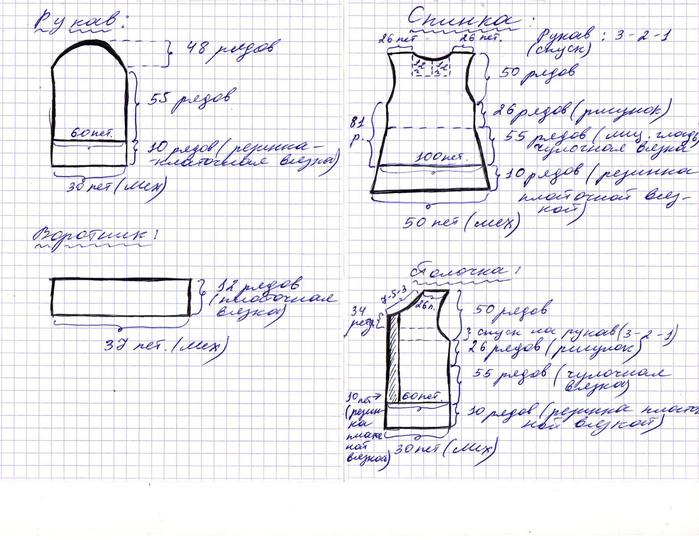 Рукав:
48 рядов
55 рядов
60 пет.
10 рядов (резинка-
-платочная вязка)
30 пет (мех)
Воротник:
12 рядов
(платочная
вязка)
37 пет. (мех)
Спинка:
26 пет.
26 пет.
Рукав: 3-2-1
(спуск)
50 рядов
26 рядов (рисунок)
81
р.
55 рядов (лиц. гладь,
чулочная вязка
100 пет.
10 рядов (резинка
платочной вяз-
кой)
50 пет (мех)
Полочка:
7-5-3
26 п.
34
50 рядов
спуск на рукав (3-2-1)
26 рядов (рисунок)
55 рядов (чулочная
вязка)
10 пет
(резин-
ка
плато
ной
вязкой)
60 пет.
10 рядов (резинка платоч
ной вязкой)
30 пет (мех)